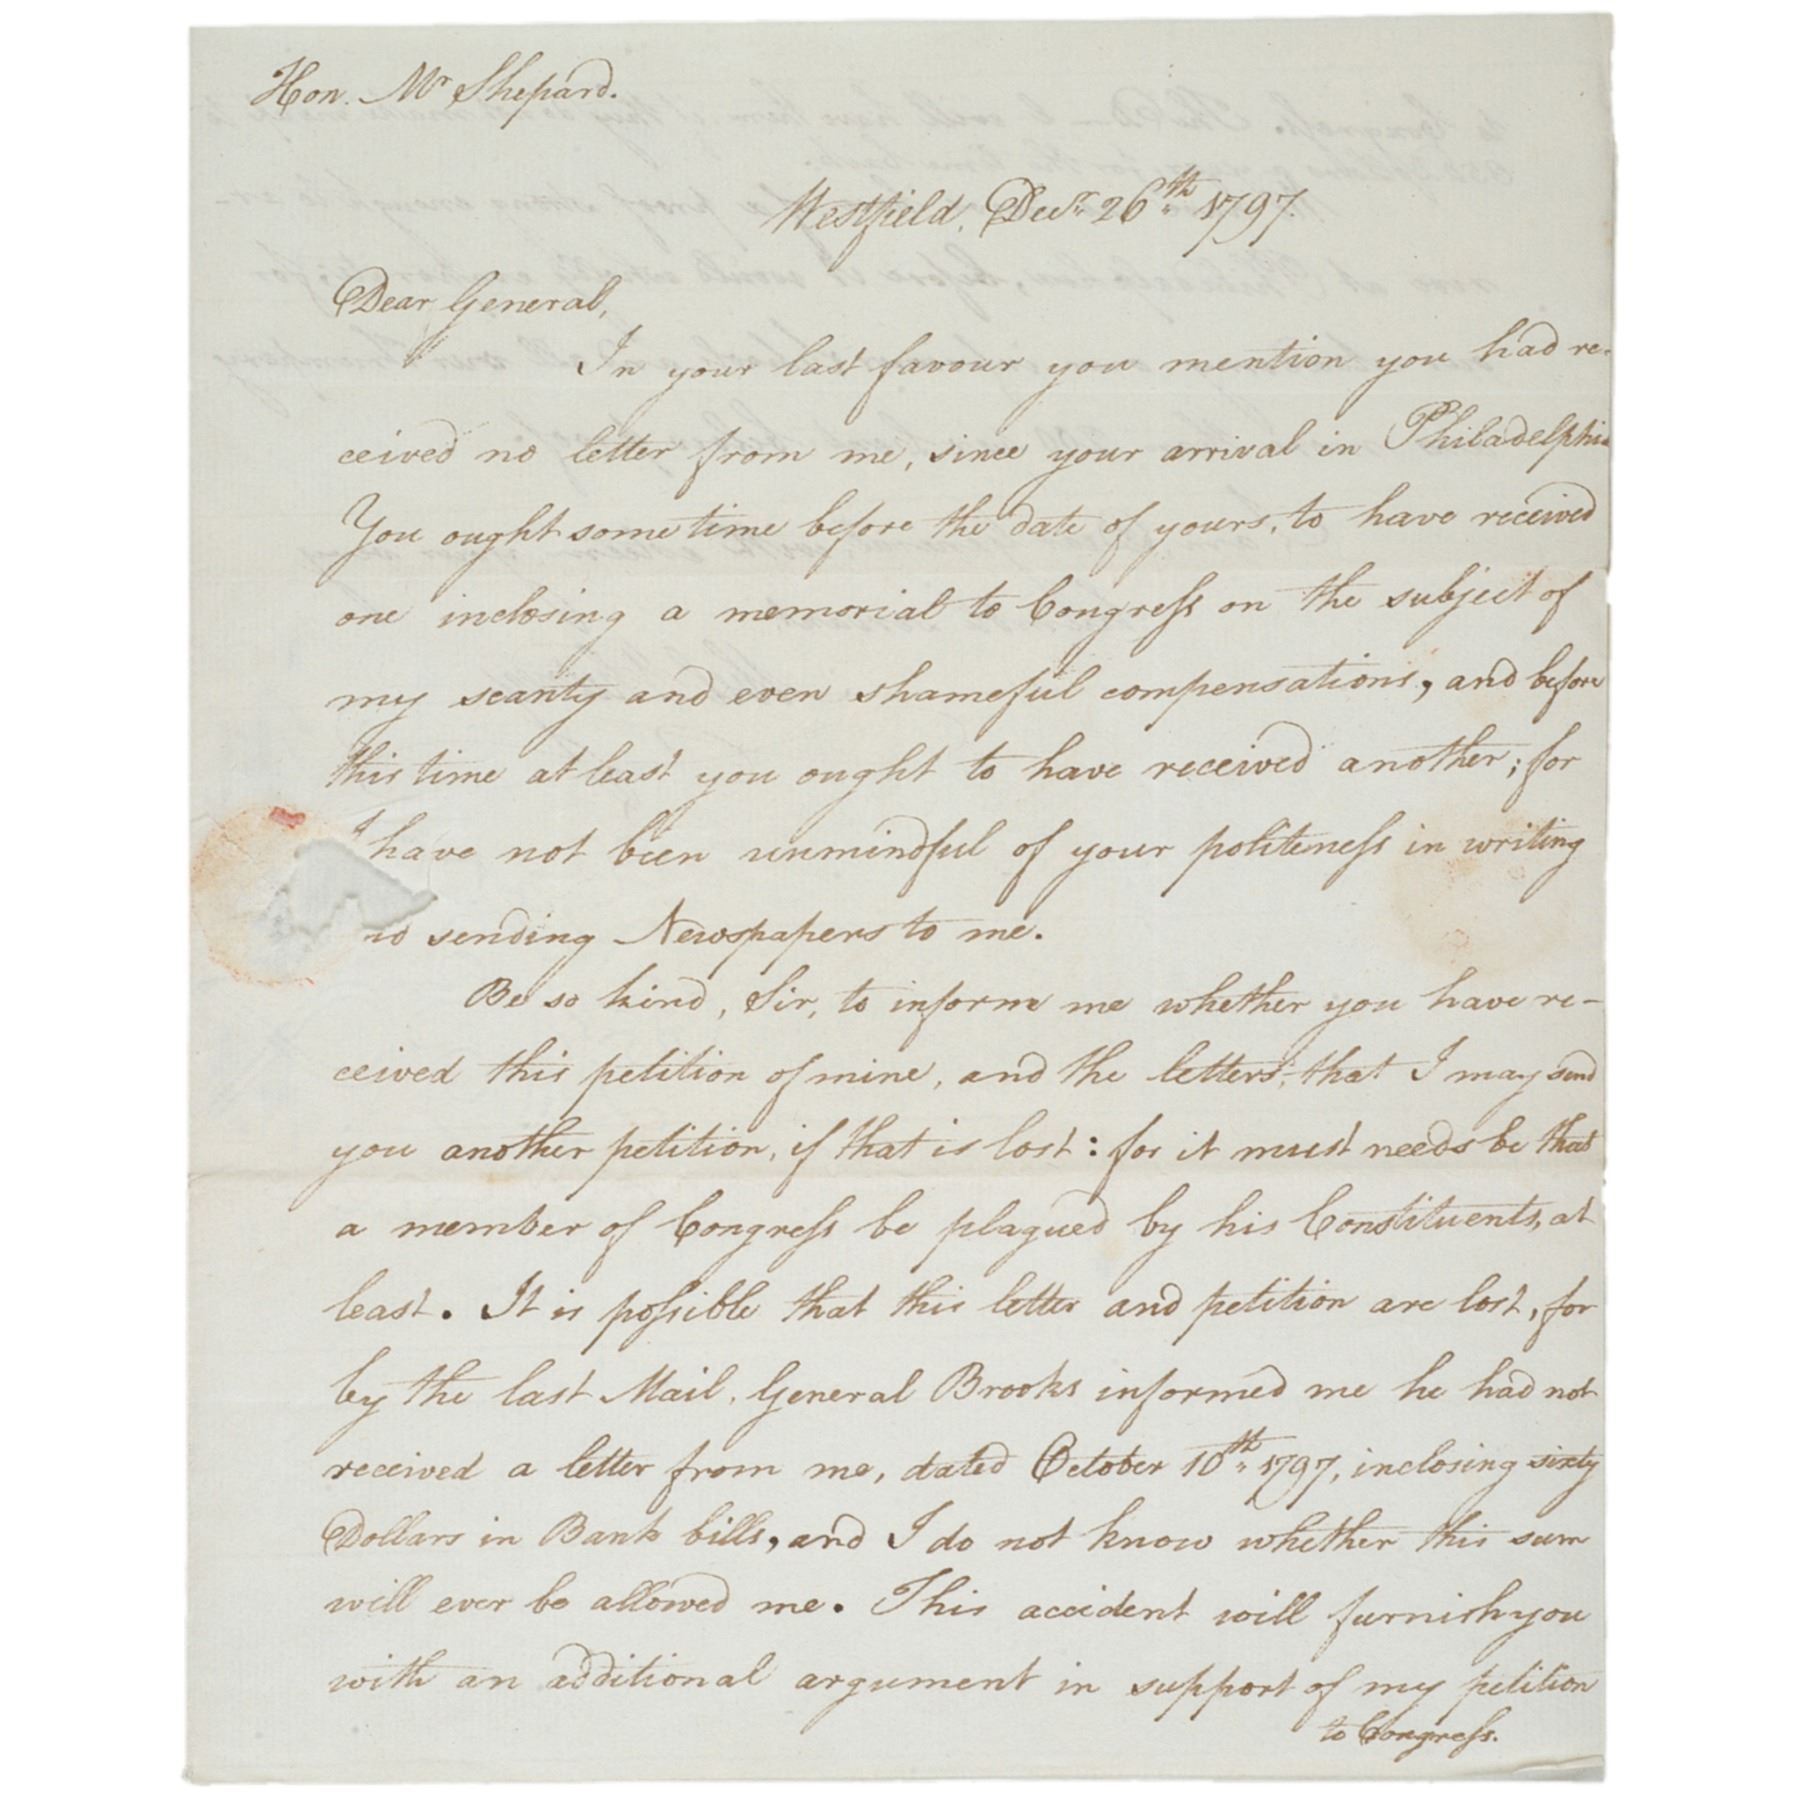 Hon. Mr Shepard.
Westfield, Decr. 26th. 1797.
Dear General,
In your last favour you mention you had re-
ceived no letter from me, since your arrival in Philadelphia
You ought some time before the date of yours, to have received
one inclosing a memorial to Congress on the subject of
my scanty and even shameful compensations, and before
this time at least you ought to have received another; for
I have not been unmindful of your politeness in writing
nd sending Newspapers to me.
Be so kind, Sir, to inform me whether you have re-
ceived this petition of mine, and the letters, that I may send
you another petition, if that is lost: for it must needs be that
a member of Congress be plagued by his Constituents, at
least. It is possible that this letter and petition are lost, for
by the last Mail, General Brooks informed me he had not
received a letter from me, dated October 10th. 1797, inclosing sixty
Dollars in Bank bills, and I do not know whether this sum
will ever be allowed me. This accident will furnish you
with an additional argument in support of my petition
to Congress.